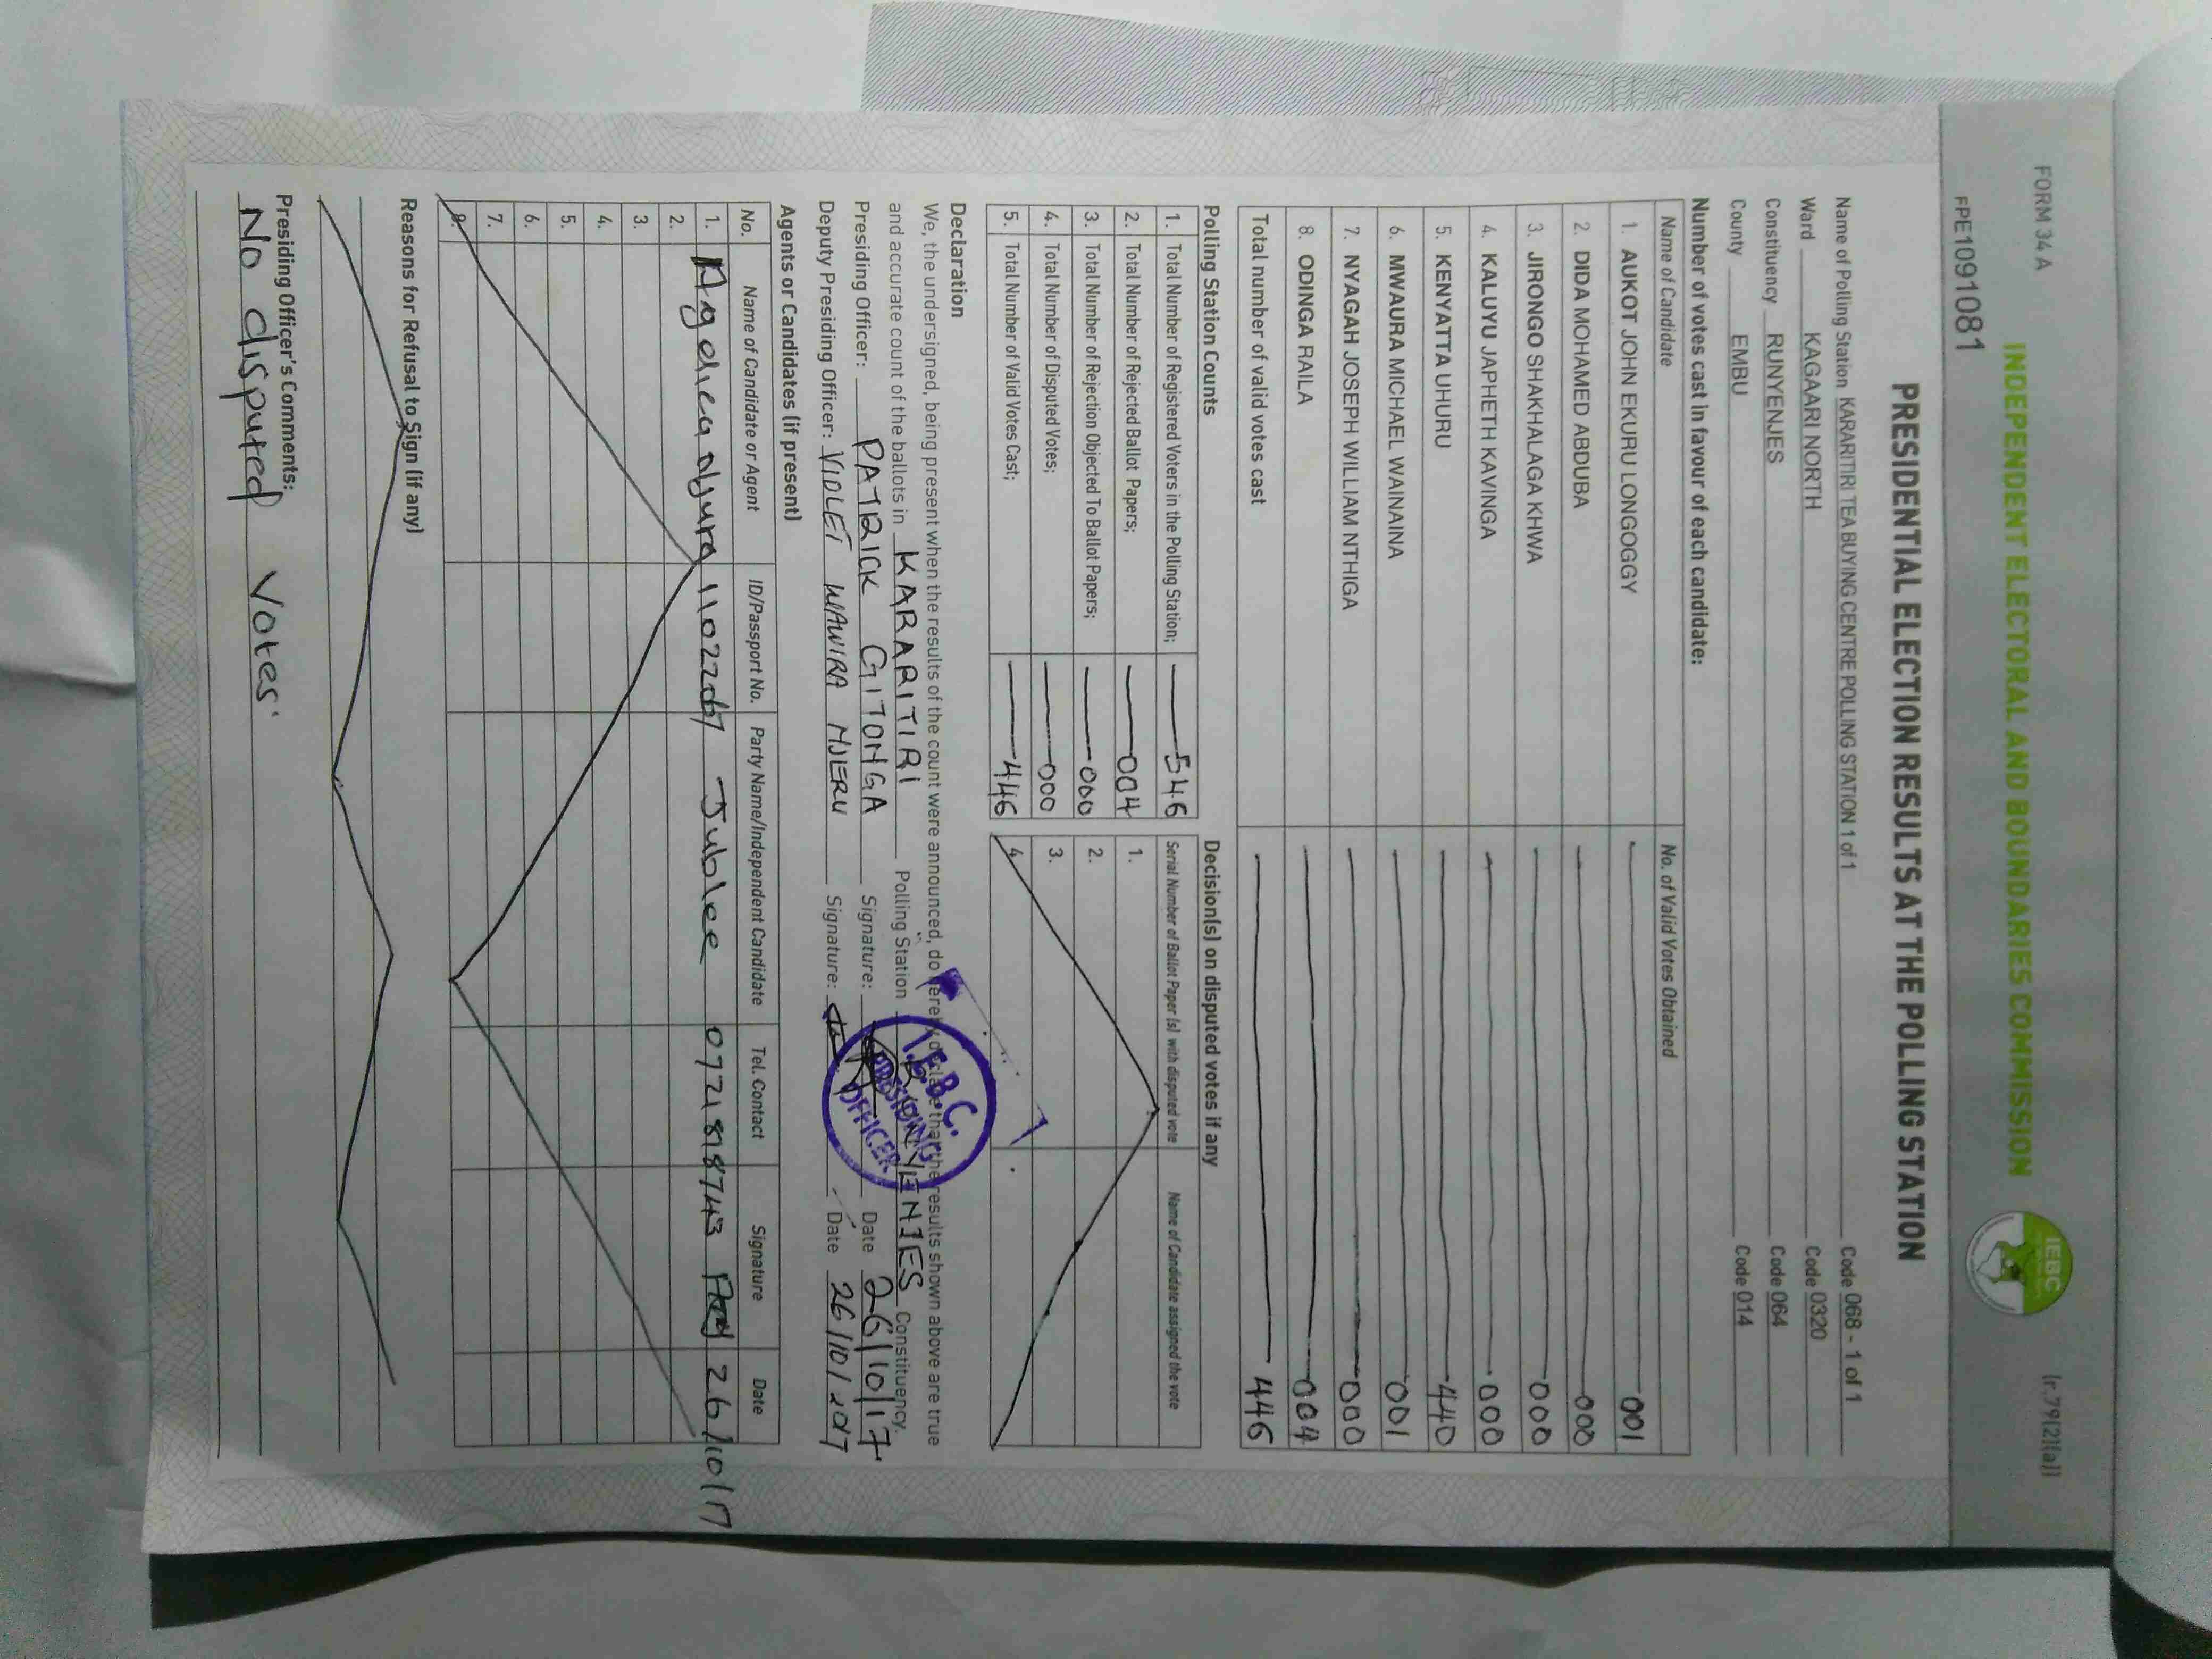 FORM 34 A
(r.79(2)(a))
INDEPENDENT ELECTORAL AND BOUNDARIES COMMISSION
IEBC
FPE1091081
PRESIDENTIAL ELECTION RESULTS AT THE POLLING STATION
Name of Polling Station KARARITIRI TEA BUYING CENTRE POLLING STATION 1 of 1 Code 068 - 1 of 1
Ward KAGAARI NORTH Code 0320
Constituency RUNYENJES Code 064
County EMBU Code 014
Number of votes cast in favour of each candidate:
Name of Candidate No. of Valid Votes Obtained
1. AUKOT JOHN EKURU LONGOGGY 001
2. DIDA MOHAMED ABDUBA 000
3. JIRONGO SHAKHALAGA KHWA 000
4. KALUYU JAPHETH KAVINGA 000
5. KENYATTA UHURU 440
6. MWAURA MICHAEL WAINAINA 001
7. NYAGAH JOSEPH WILLIAM NTHIGA 000
8. ODINGA RAILA 004
Total number of valid votes cast 446
Polling Station Counts Decision(s) on disputed votes if any
1. Total Number of Registered Voters in the Polling Station; 546 Serial Number of Ballot Paper (s) with disputed vote Name of Candidate assigned the vote
2. Total Number of Rejected Ballot Papers; 004 1.
3. Total Number of Rejection Objected To Ballot Papers; 000 2.
4. Total Number of Disputed Votes; 000 3.
5. Total Number of Valid Votes Cast; 446 4.
Declaration
We, the undersigned, being present when the results of the count were announced, do hereby declare that the results shown above are true
and accurate count of the ballots in KARARITIRI Polling Station RUNYENJES Constituency.
Presiding Officer: PATRICK GITONGA Signature: Date 26/10/17
Deputy Presiding Officer: VIOLET WAWIRA NJERU Signature: Date 26/10/2017
I.E.B.C.
PRESIDING
OFFICER
Agents or Candidates (if present)
No. Name of Candidate or Agent ID/Passport No. Party Name/Independent Candidate Tel. Contact Signature Date
1. Jubilee 26/10/17
2.
3.
4.
5.
6.
7.
8.
Reasons for Refusal to Sign (if any)
Presiding Officer's Comments:
No disputed Votes.